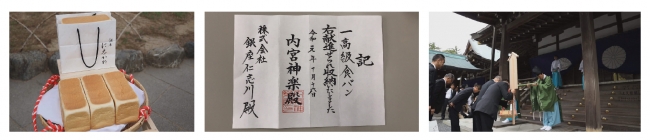 に志かわ
記
一高級食パン
右献進せられ収納いたしました
令和元年十月十六日
内宮神楽殿
株式会社
銀座仁志川殿